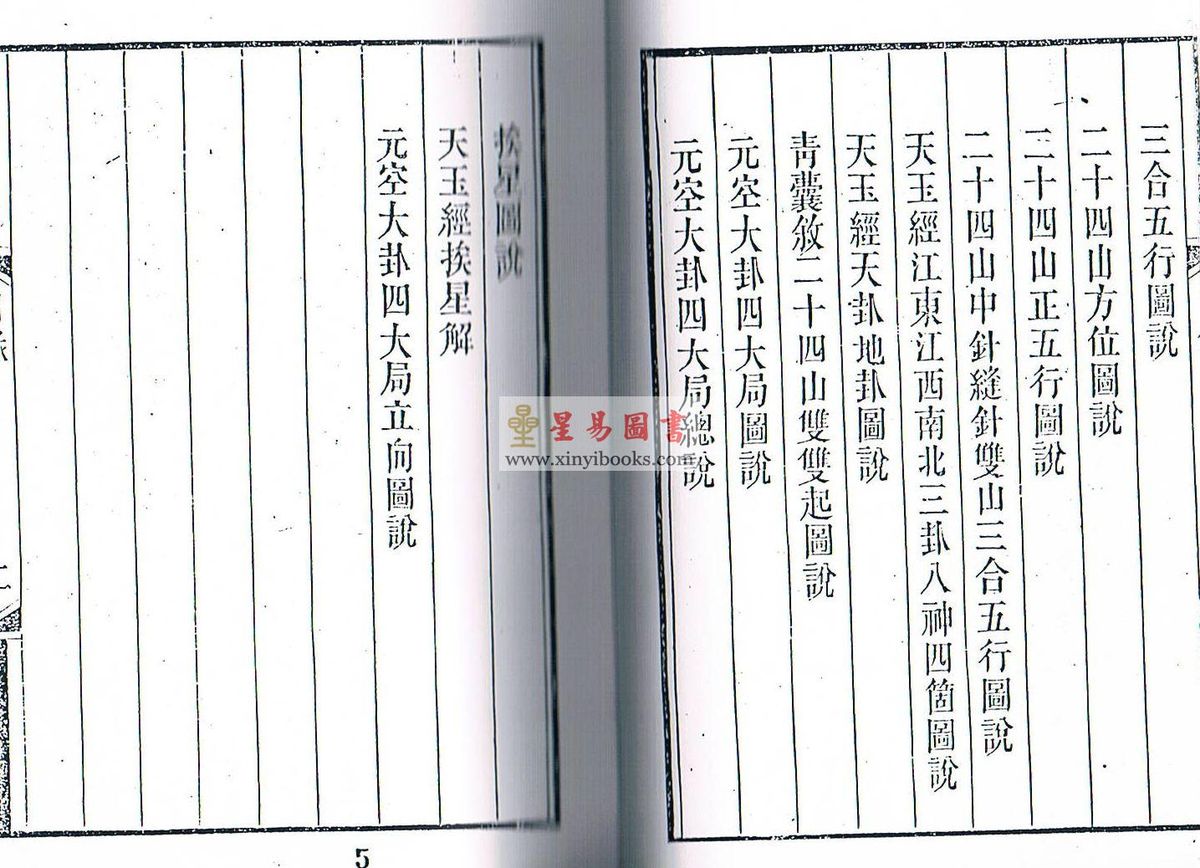 三合五行圖說
二十四山方位圖說
二十四山正五行圖說
二十四山中針縫針雙山三合五行圖說
天玉經江東江西南北三卦八神四箇圖說
天玉經天卦地卦圖說
青囊敘二十四山雙雙起圖說
元空大卦四大局圖說
元空大卦四大局總說
挨星圖說
天玉經挨星解
元空大卦四大局立向圖說
5
星易圖書
www.xinyibooks.com